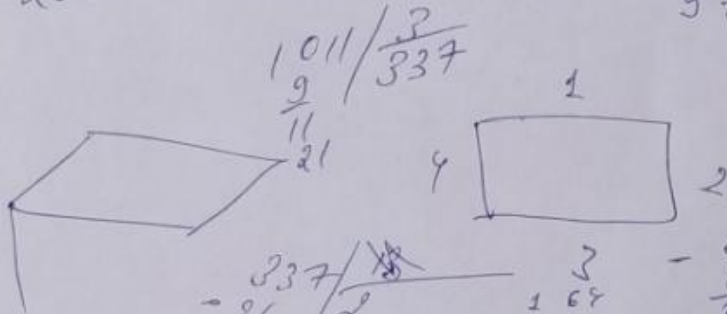 1011/3
337
9
11
21
1
4
2
337/
3
1 64